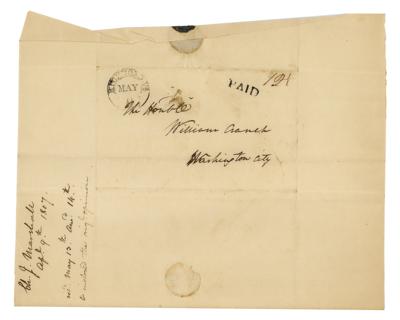 MAY
PAID
The Honble
William Cranch
Washington City
Ch. J. Marshall
Apl. 9th. 1807.
recd. May 13th. Ansd. 14th.